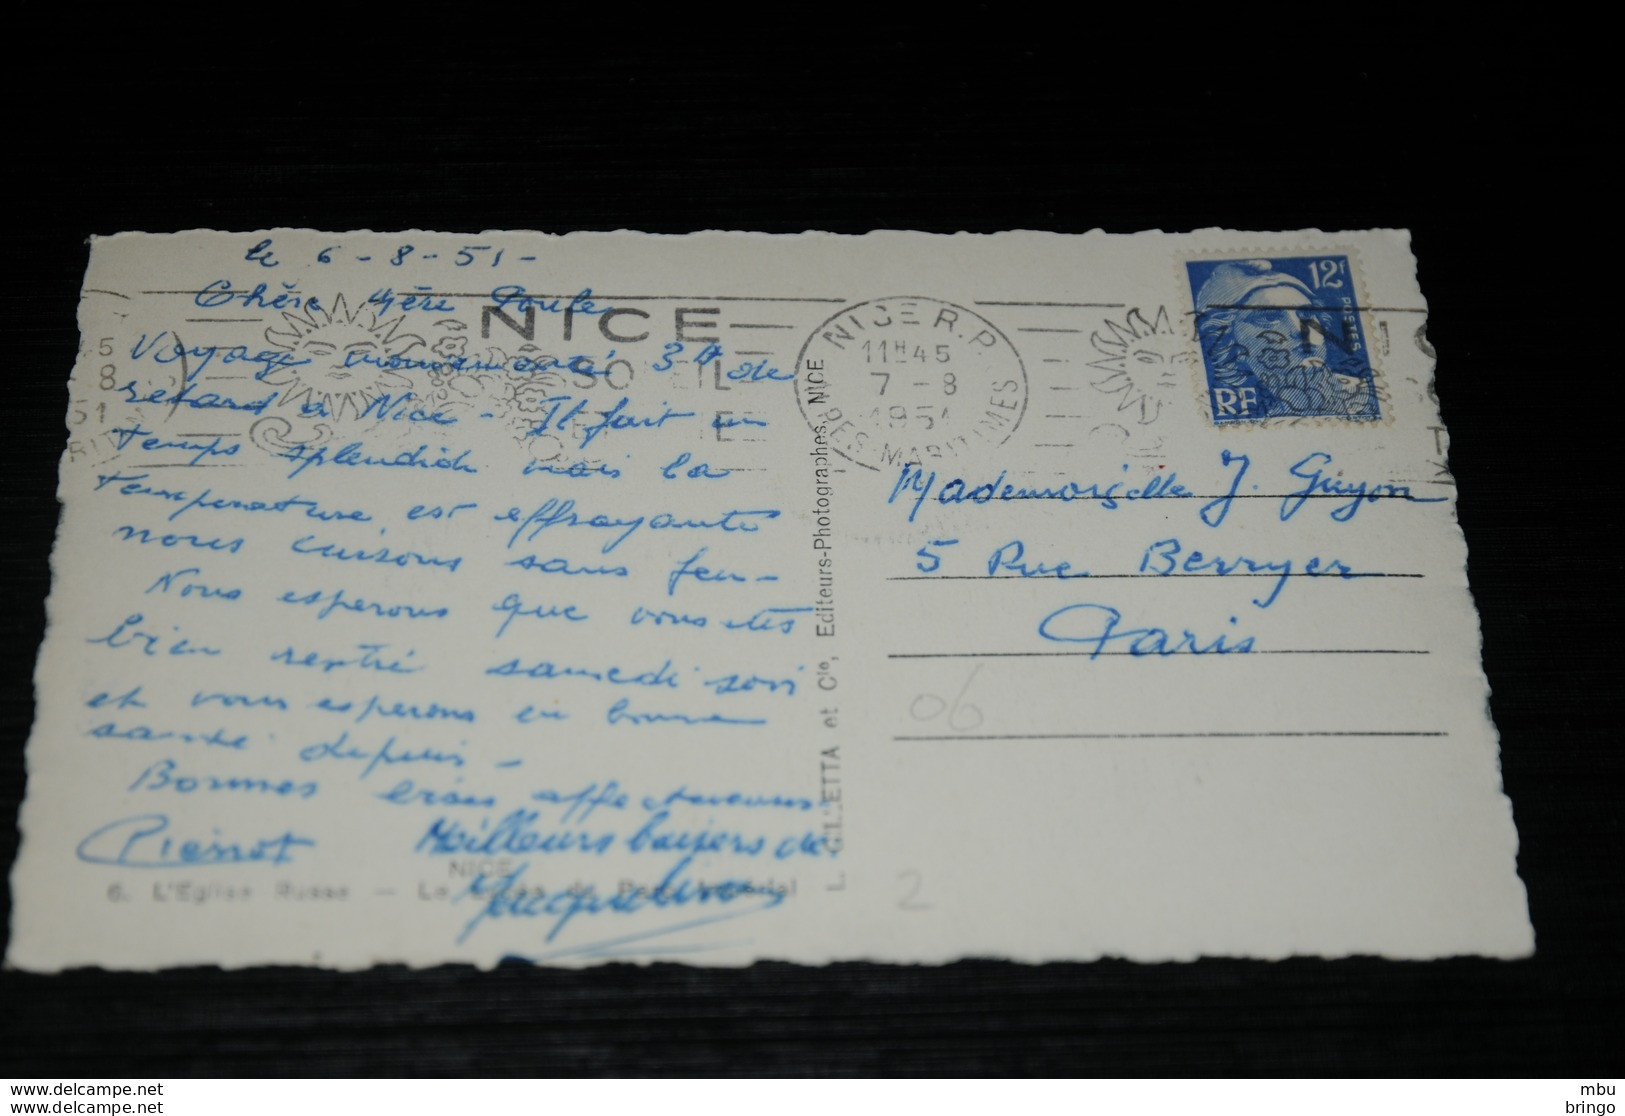 le 6-8-51-
Chère Mère Poule
Voyage mouvementé 3h de
retard à Nice - Il fait un
temps splendide mais la
température est effrayante
nous cuisons sans feu-
Nous esperons que vous êtes
bien rentré samedi soir
et vous esperons en bonne
santé depuis -
Bonnes bises affectueuses
Pierrot Meilleurs baisers de
Jacqueline
NICE
6. L'Eglise Russe - La
L. GILLETTA et Cie, Editeurs-Photographes, NICE
NICE
SOLEIL
NICE R.P.
11H45
7 - 8
1951
ALPES-MARITIMES
5
8
51
12F
POSTES
RF
Mademoiselle J. Guyon
5 Rue Berryer
Paris
06
2
www.delcampe.net
www.delcampe.net
mbu
bringo